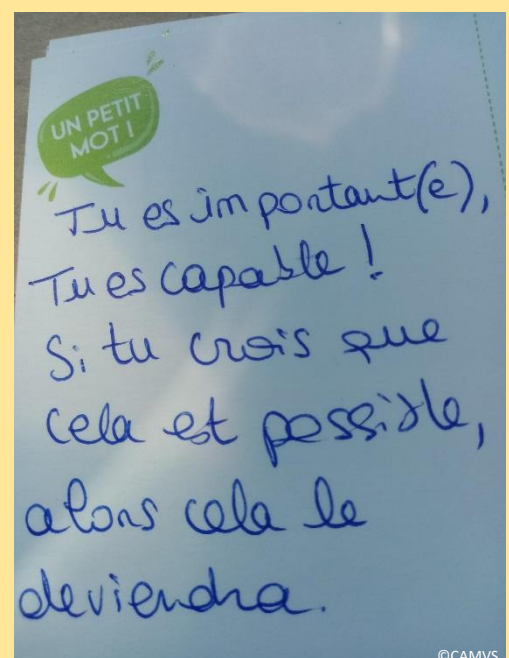 UN PETIT
MOT !
Tu es important(e),
Tu es capable !
Si tu crois que
cela est possible,
alors cela le
deviendra.
©CAMVS